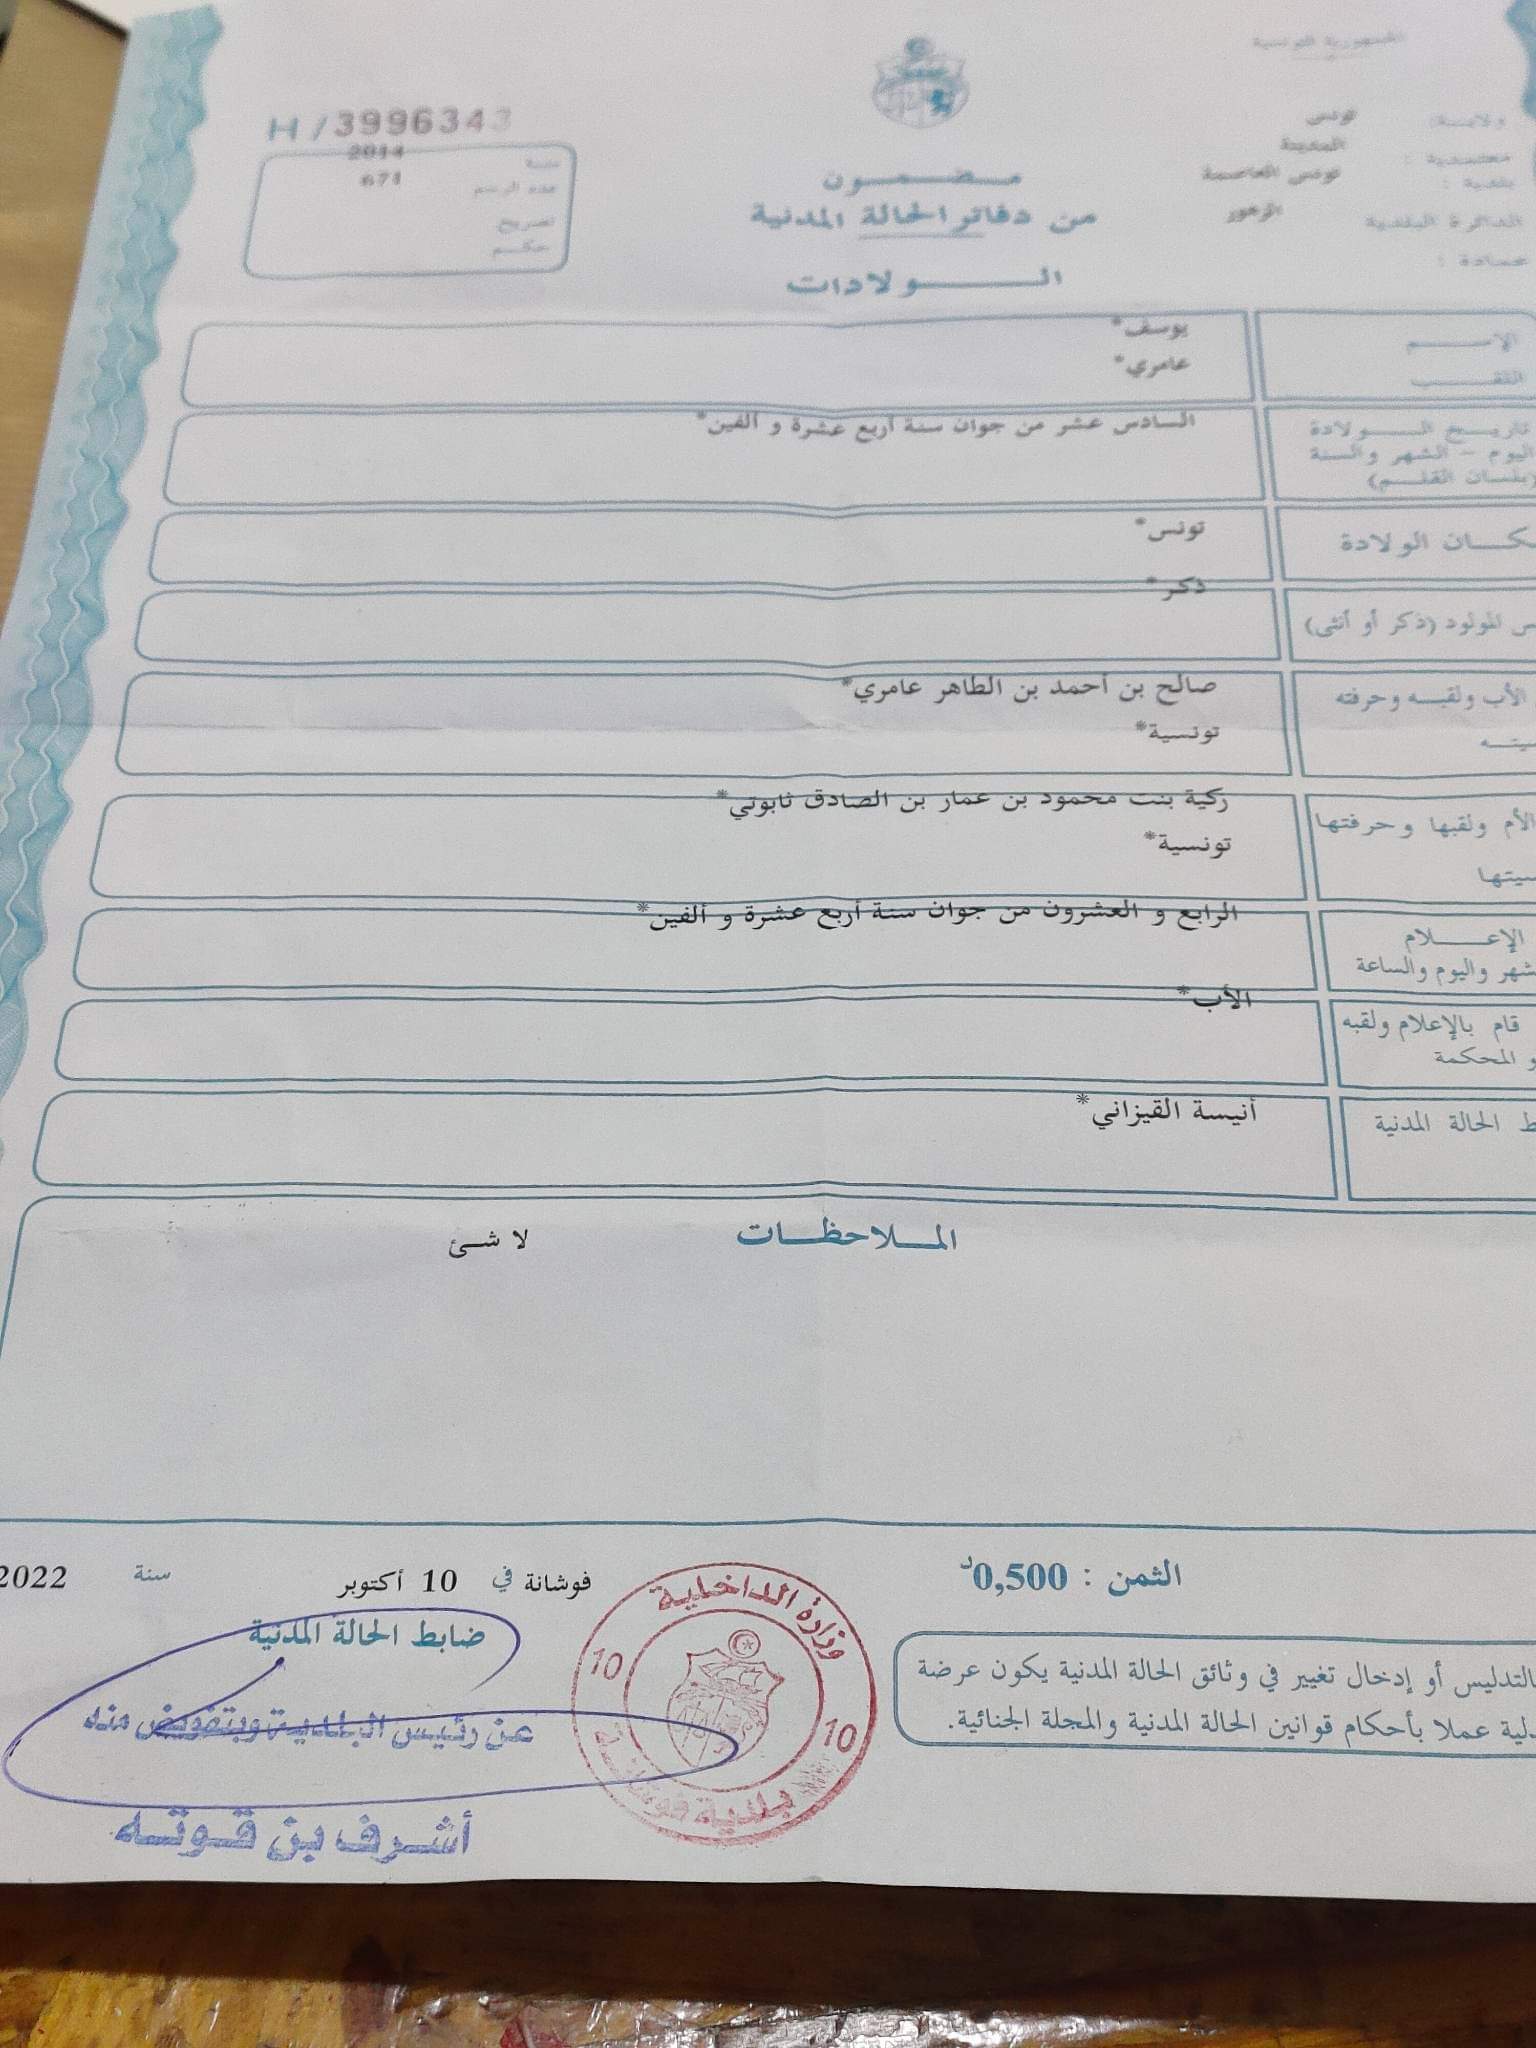 الجمهورية التونسية
ولايـة: تونس
معتمدية : المدينة
بلدية : تونس العاصمة
الدائرة البلدية الزهور
عمادة :
H/3996343
سنة 2014
عدد الرسم 671
تصريح
حكم
مضمون
من دفاتر الحالة المدنية
الولادات
الإسم يوسف*
اللقب عامري*
تاريخ الولادة السادس عشر من جوان سنة أربع عشرة و ألفين*
اليوم - الشهر والسنة
(بلسان القلم)
كان الولادة تونس*
س المولود (ذكر أو أنثى) ذكر*
الأب ولقبه وحرفته صالح بن أحمد بن الطاهر عامري*
سيته تونسية*
الأم ولقبها وحرفتها ركية بنت محمود بن عمار بن الصادق ثابوتي*
سيتها تونسية*
الإعلام الرابع و العشرون من جوان سنة أربع عشرة و ألفين*
شهر واليوم والساعة
قام بالإعلام ولقبه الأب*
و المحكمة
ط الحالة المدنية أنيسة القيزاني*
الملاحظات
لا شئ
الثمن : 0,500د
فوشانة في 10 أكتوبر سنة 2022
ضابط الحالة المدنية
عن رئيس البلدية وبتفويض منه
أشرف بن قوته
وزارة الداخلية
10 10
بلدية فوشانة
بالتدليس أو إدخال تغيير في وثائق الحالة المدنية يكون عرضة
دلية عملا بأحكام قوانين الحالة المدنية والمجلة الجنائية.